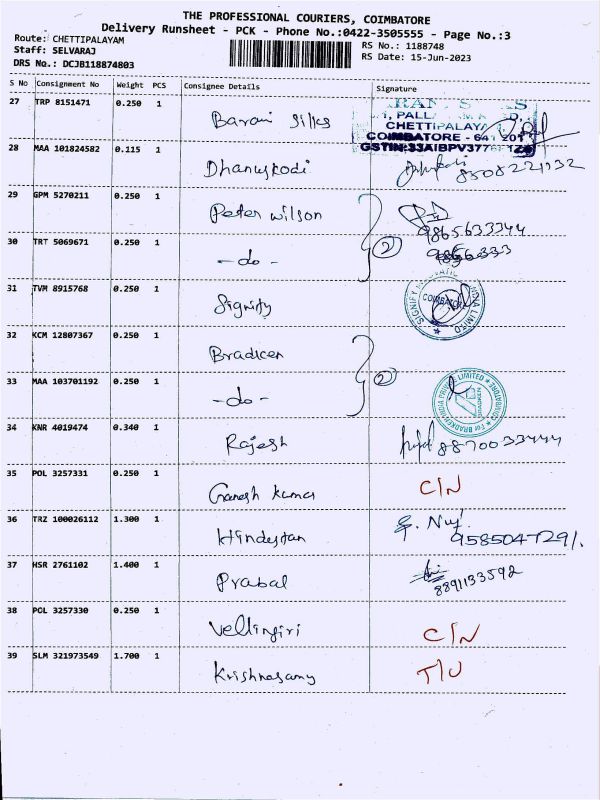 THE PROFESSIONAL COURIERS, COIMBATORE
Delivery Runsheet - PCK - Phone No.:0422-3505555 - Page No.:3
Route: CHETTIPALAYAM
RS No.: 1188748
Staff: SELVARAJ
RS Date: 15-Jun-2023
DRS No.: DCJB118874803
S No Consignment No Weight PCS Consignee Details Signature
27 TRP 8151471 0.250 1 Barani Silks
CHETTIPALAYA
COIMBATORE - 641 201
28 MAA 101824582 0.115 1 Dhanuskodi 8508221132
29 GPM 5270211 0.250 1 Peter wilson 9865633344
30 TRT 5069671 0.250 1 - do - 2
31 TVM 8915768 0.250 1 Signify
32 KCM 12807367 0.250 1 Bradken
33 MAA 103701192 0.250 1 - do - 2
34 KNR 4019474 0.340 1 Rajesh 8870033444
35 POL 3257331 0.250 1 Ganesh kumar C/N
36 TRZ 100026112 1.300 1 Hindustan 9585047291.
37 HSR 2761102 1.400 1 Prabal 8891133592
38 POL 3257330 0.250 1 Vellingiri C/N
39 SLM 321973549 1.700 1 Krishnasamy T/U